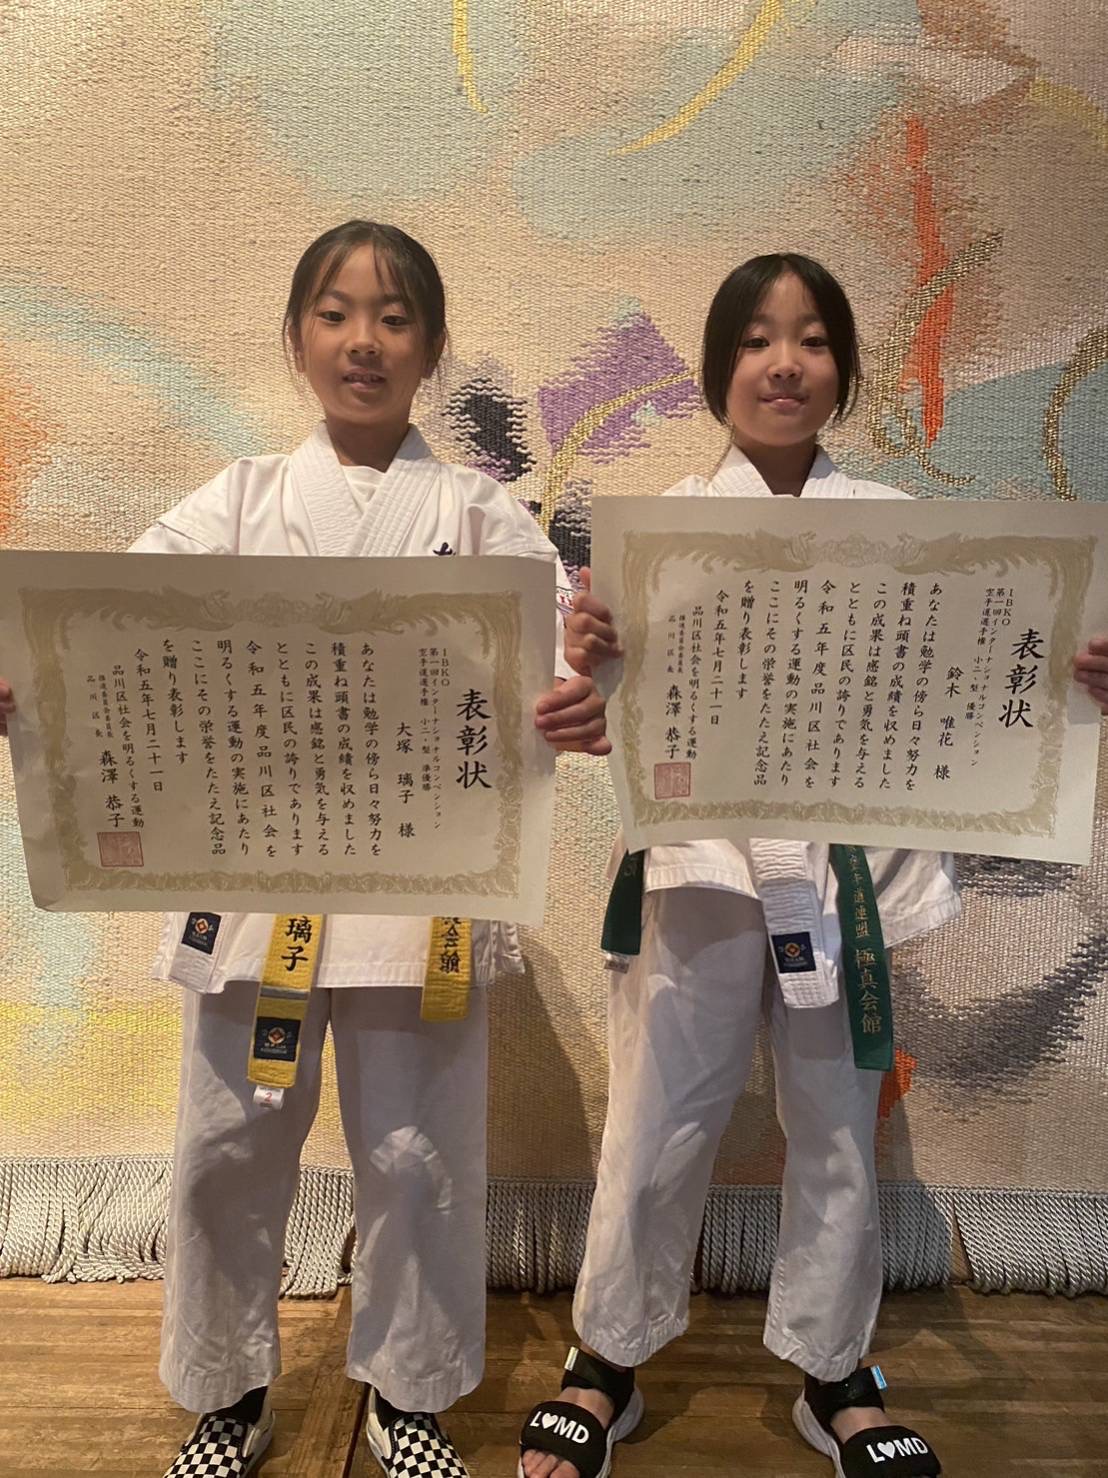 表彰状
IBKO
第一回インターナショナルコンベンション
空手道選手権 小二・型 準優勝
大塚 璃子 様
あなたは勉学の傍ら日々努力を
積重ね頭書の成績を収めました
この成果は感銘と勇気を与える
とともに区民の誇りであります
令和五年度品川区社会を
明るくする運動の実施にあたり
ここにその栄誉をたたえ記念品
を贈り表彰します
令和五年七月二十一日
品川区社会を明るくする運動
推進委員会委員長
品川区長 森澤 恭子
表彰状
IBKO
第一回インターナショナルコンベンション
空手道選手権 小二・型 優勝
鈴木 唯花 様
あなたは勉学の傍ら日々努力を
積重ね頭書の成績を収めました
この成果は感銘と勇気を与える
とともに区民の誇りであります
令和五年度品川区社会を
明るくする運動の実施にあたり
ここにその栄誉をたたえ記念品
を贈り表彰します
令和五年七月二十一日
品川区社会を明るくする運動
推進委員会委員長
品川区長 森澤 恭子
璃子
2
空手道連盟 極真会館
L♥MD
L♥MD